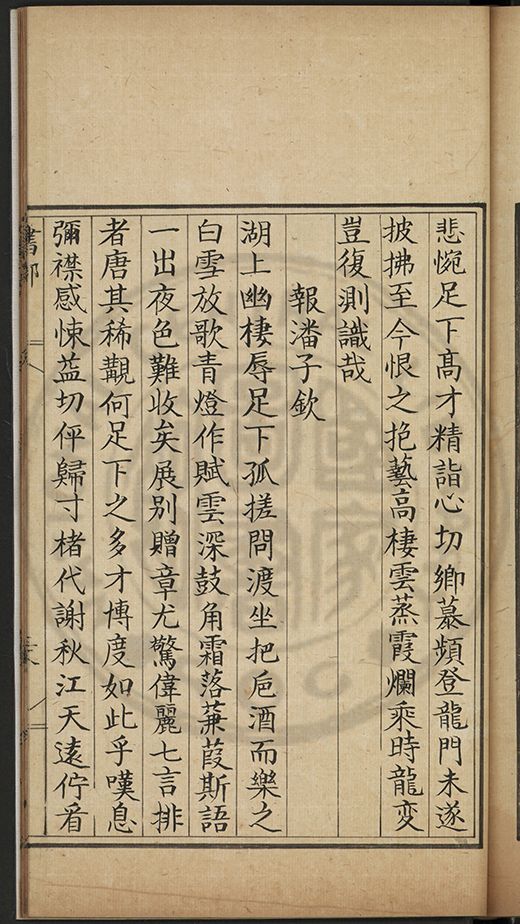 悲惋足下髙才精詣心切鄉慕頻登龍門未遂
披拂至今恨之抱藝高棲雲蒸霞爛乘時龍变
豈復測識哉
報潘子欽
湖上幽棲辱足下孤搓問渡坐把巵酒而樂之
白雪放歌青燈作賦雲深鼓角霜落蒹葭斯語
一出夜色難收矣展别贈章尤驚偉麗七言排
者唐其稀觀何足下之多才博度如此乎嘆息
彌襟感悚益切伻歸寸楮代謝秋江天遠佇看